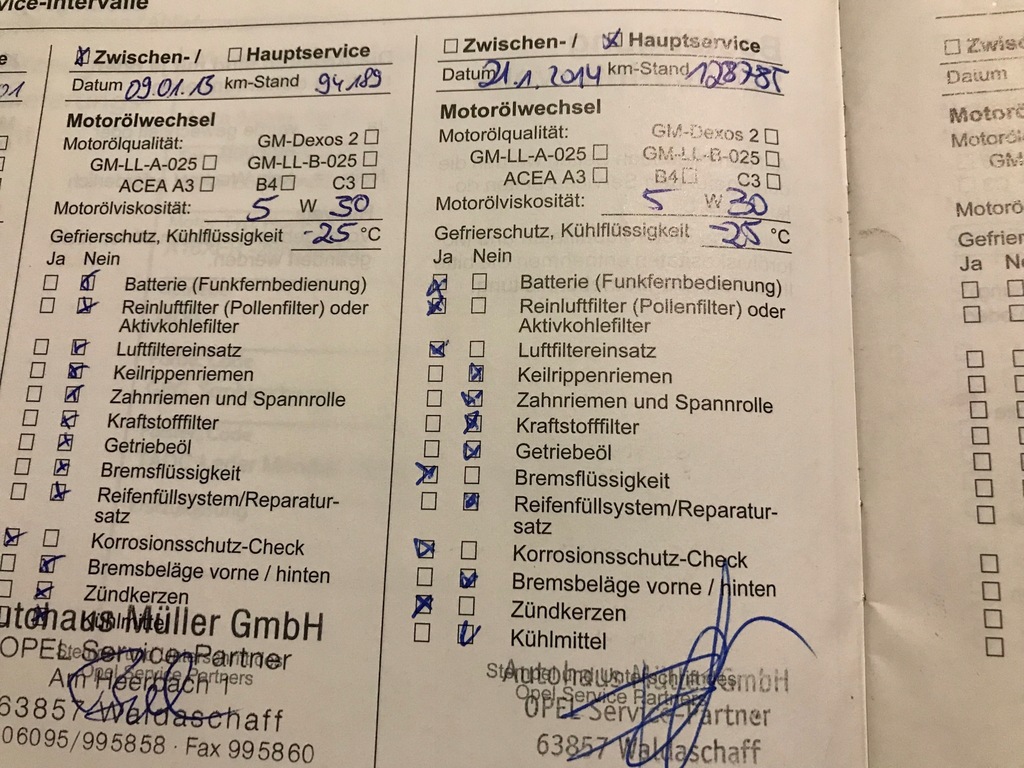 vice-Intervalle
Zwischen- / Hauptservice
Datum 09.01.13 km-Stand 94189
Motorölwechsel
Motorölqualität: GM-Dexos 2
GM-LL-A-025 GM-LL-B-025
ACEA A3 B4 C3
Motorölviskosität: 5 W 30
Gefrierschutz, Kühlflüssigkeit -25 °C
Ja Nein
Batterie (Funkfernbedienung)
Reinluftfilter (Pollenfilter) oder
Aktivkohlefilter
Luftfiltereinsatz
Keilrippenriemen
Zahnriemen und Spannrolle
Kraftstofffilter
Getriebeöl
Bremsflüssigkeit
Reifenfüllsystem/Reparatur-
satz
Korrosionsschutz-Check
Bremsbeläge vorne / hinten
Zündkerzen
Kühlmittel
utohaus Müller GmbH
OPEL Service-Partner
Opel Service Partners
Am Heerbach 1
63857 Waldaschaff
06095/995858 · Fax 995860
Zwischen- / Hauptservice
Datum 21.1.2014 km-Stand 128785
Motorölwechsel
Motorölqualität: GM-Dexos 2
GM-LL-A-025 GM-LL-B-025
ACEA A3 B4 C3
Motorölviskosität: 5 W 30
Gefrierschutz, Kühlflüssigkeit -25 °C
Ja Nein
Batterie (Funkfernbedienung)
Reinluftfilter (Pollenfilter) oder
Aktivkohlefilter
Luftfiltereinsatz
Keilrippenriemen
Zahnriemen und Spannrolle
Kraftstofffilter
Getriebeöl
Bremsflüssigkeit
Reifenfüllsystem/Reparatur-
satz
Korrosionsschutz-Check
Bremsbeläge vorne / hinten
Zündkerzen
Kühlmittel
Autohaus Müller GmbH
Stempel und Unterschrift des
Opel Service Partners
OPEL Service-Partner
63857 Waldaschaff
Zwisc
Datum
Motoröl
Motoröl
GM
Motorö
Gefrier
Ja Ne